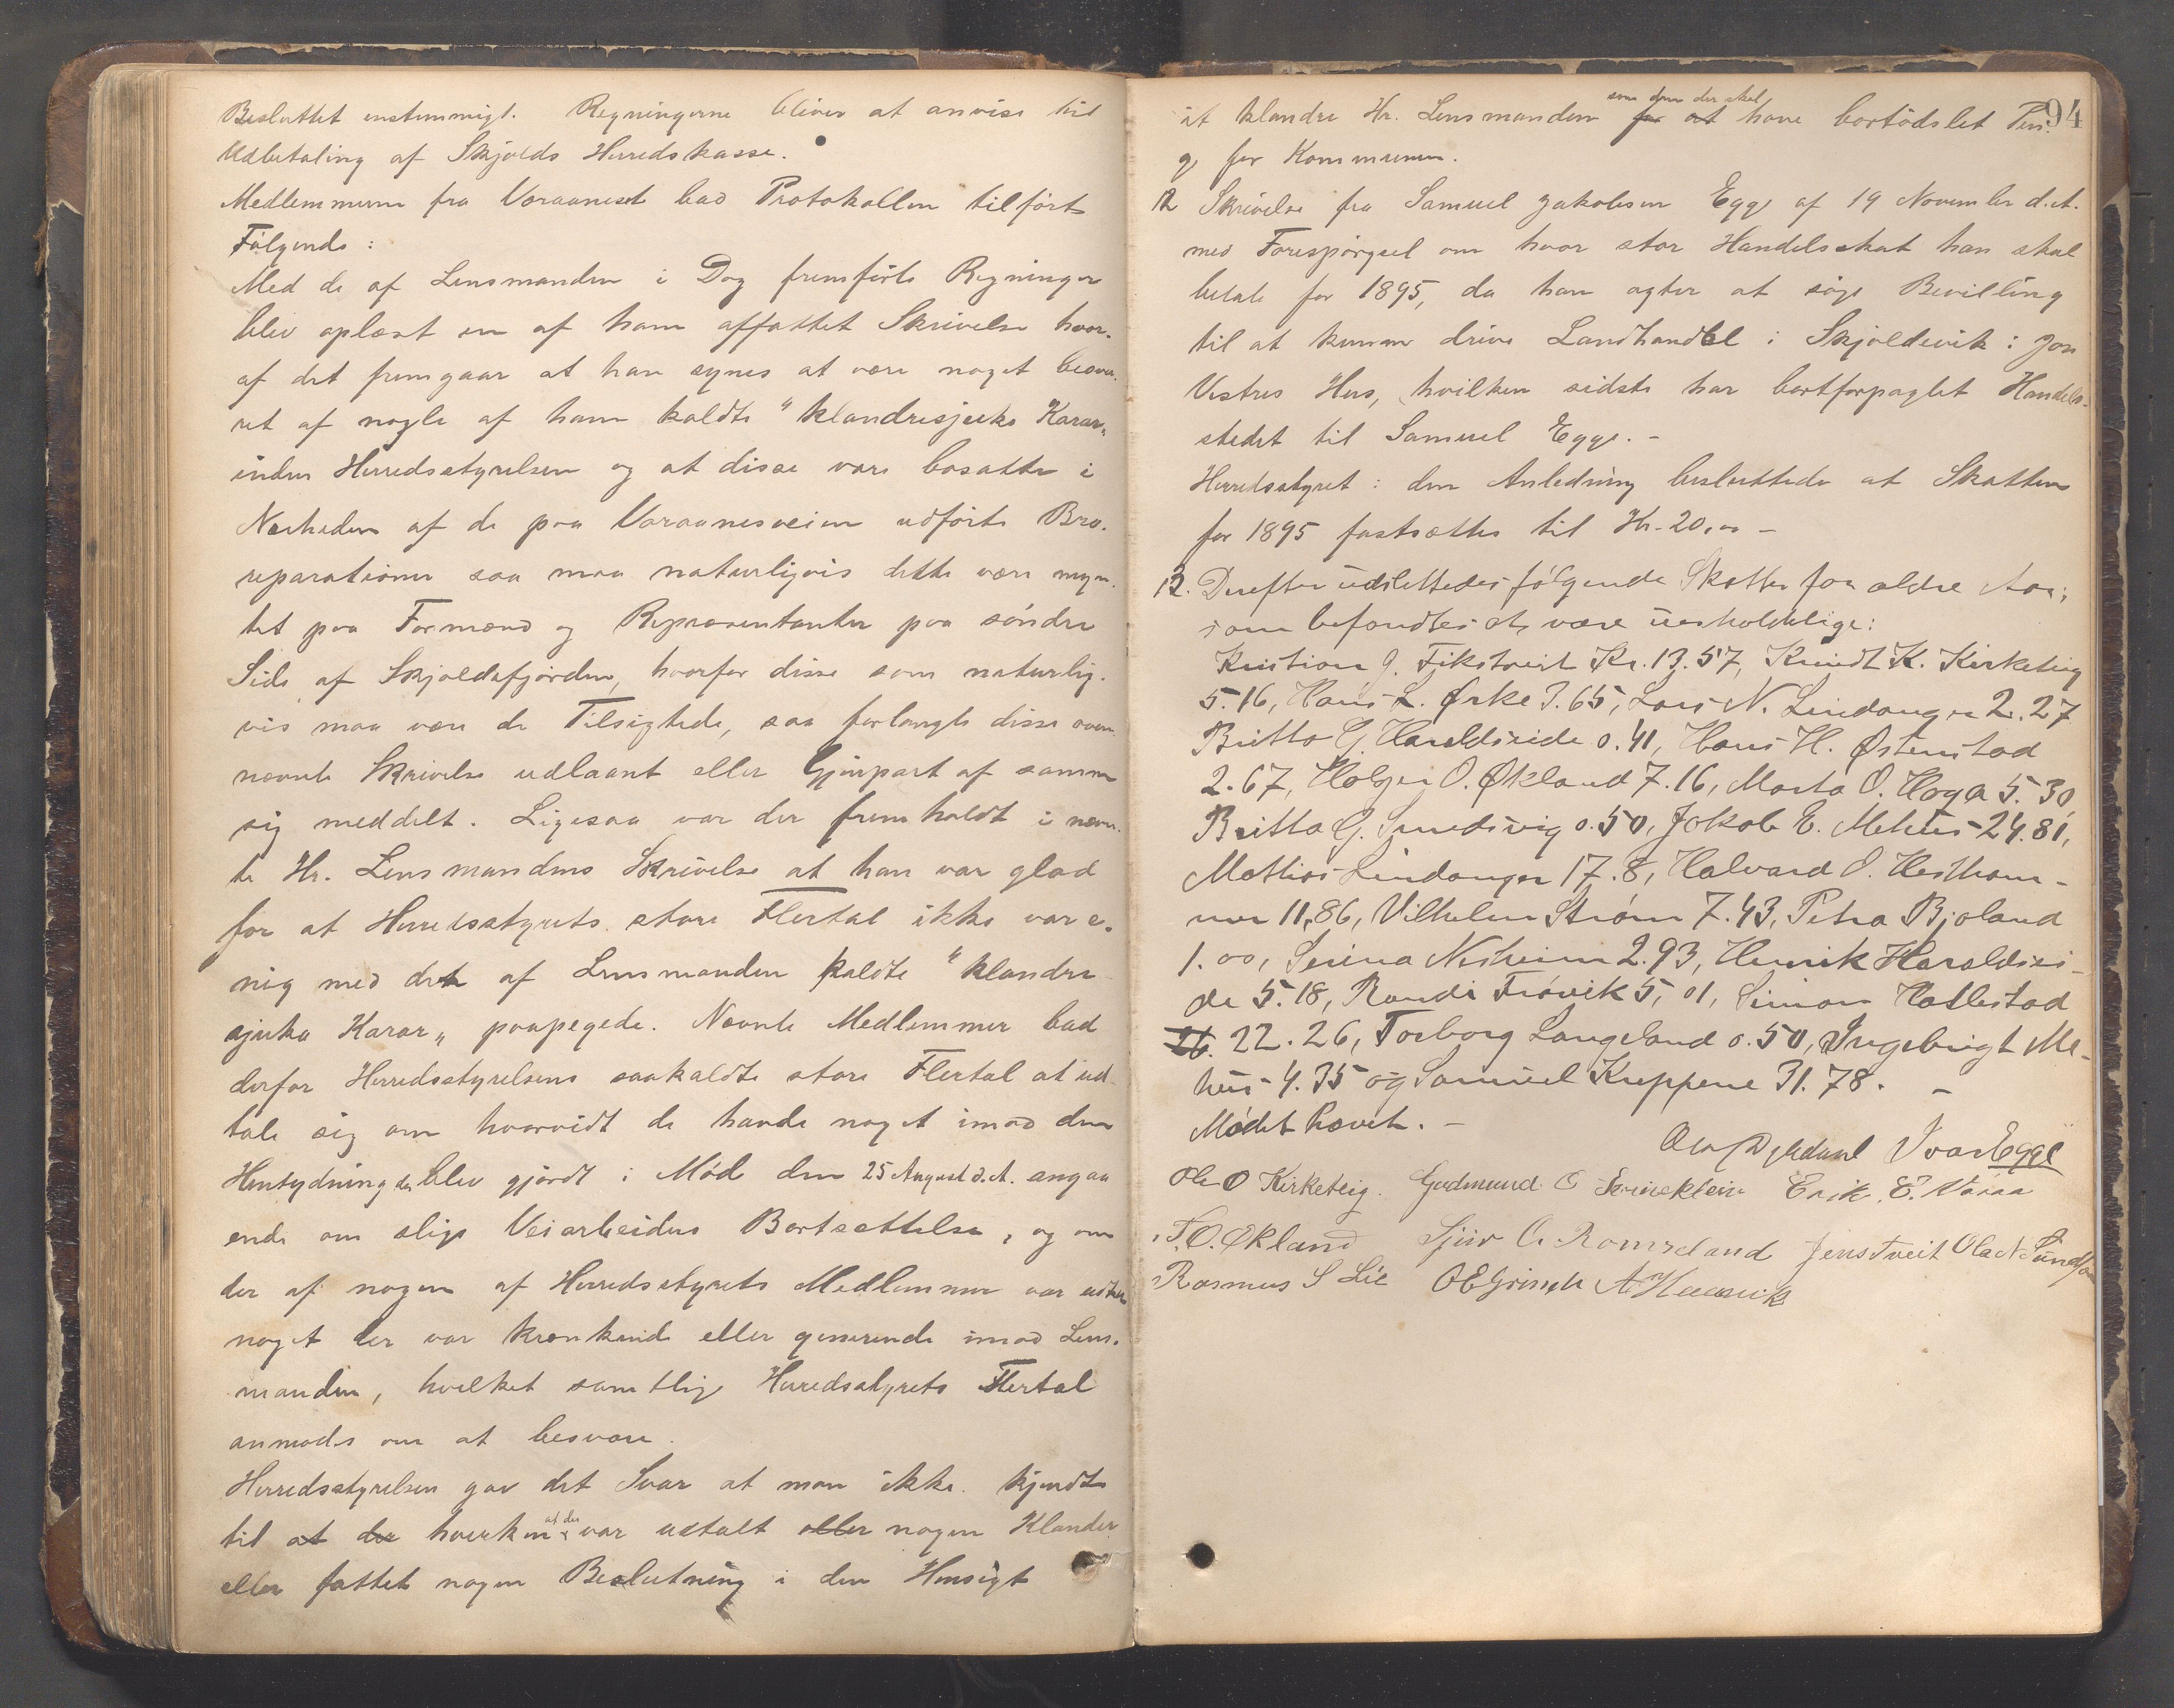 Besluttet enstemmigt. Regningerne bliver at anvise til
Udbetaling af Skjolds Herredskasse.
Medlemmerne fra Voraaneset bad Protokollen tilført
Følgende:
Med de af Lensmanden i Dag fremførte Regninger
blev oplæst en af ham affattet Skrivelse hvor-
af det fremgaar at han synes at være noget besvæ-
ret af nogle af ham kaldte "klandresjuke Karar„
inden Herredsstyrelsen og at disse vare bosatte i
Nærheden af de paa Voraanesveien udførte Bro-
reparationer saa maa naturligvis dette være myn-
tet paa Formænd og Repræsentanter paa søndre
Side af Skjoldafjorden, hvorfor disse som naturlig-
vis maa være de Tilsigtede, saa forlangte disse oven-
nævnte Skrivelse udlaant eller Gjenpart af samme
sig meddelt. Ligesaa var der fremholdt i nævn-
te Hr. Lensmandens Skrivelse at han var glad
for at Herredsstyrets store Flertal ikke var e-
nig med det af Lensmanden kaldte "klandre
sjuka Karar„ paapegede. Nævnte Medlemmer bad
derfor Herredsstyrelsens saakaldte store Flertal at ud-
tale sig om hvorvidt de havde noget imod den
Hentydning der blev gjordt i Møde den 25 August d.A. angaa
ende om slige Veiarbeiders Bortsættelse, og om
der af nogen af Herredsstyrets Medlemmer var udtalt
noget der var krænkende eller generende imod Lens-
manden, hvilket samtlige Herredsstyrets Flertal
anmodes om at besvare.
Herredsstyrelsen gav det Svar at man ikke kjendte
til at der hverken at der var udtalt eller nogen Klander
eller fattet nogen Beslutning i den Hensigt
94
at klandre Hr. Lensmanden for at som den der skal have bortødslet Pen-
ge for Kommunen.
12 Skrivelse fra Samuel Jakobsen Egge af 19 November d.A.
med Forespørgsel om hvor stor Handelsskat han skal
betale for 1895, da han agter at søge Bevilling
til at kunne drive Landhandel i Skjoldevik i Jon
Vestres Hus, hvilken sidste har bortforpagtet Handels-
stedet til Samuel Egge. -
Herredsstyret i den Anledning besluttede at Skatten
for 1895 fastsættes til Kr. 20,00 -
13. Derefter udslettedes følgende Skatter for ældre Aar,
som befandtes at være uerholdelige:
Kristian G. Fikstveit Kr. 13.57, Knudt K. Kirketeig
5.16, Hans L. Ørke 3.65, Lars N. Lindanger 2.27
Britta G. Haraldseide 0.41, Hans H. Østenstad
2.67, Holger O. Økland 7.16, Marta O. Haga 5.30,
Britta G. Smedsvig 0.50, Jakob E. Mehus 24.81,
Mathias Lindanger 17.8, Halvard O. Hestham-
mer 11,86, Vilhelm Strøm 7.43, Petra Bjoland
1.00, Serina Nesheim 2.93, Henrik Haraldsei-
de 5.18, Randi Frøvik 5,01, Simon Hallestad
26. 22.26, Torborg Langeland 0.50, Ingebrigt Me-
hus 4.35 og Samuel Kreppene 31.78. -
Mødet hævet. -
Ola Ivar Egge
Ole O Kirketeig. Gudmund O Erik E. Våraa
T.O. Økland Sjur Romseland Jens Tveit Ola N
Rasmus S Lie O E Grinde A